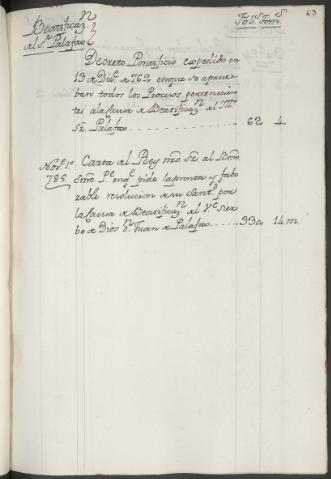 63
Beatificaz.n Fol.s Tom.s
del S.r Palafox
Decreto Pontificio expedido en
13 de Diz.e de 762, en que se aprue
ban todos los Procesos pertenecien
tes a la Causa de Beatificaz.n del Ill.mo
S.r Palafox 62 4.
Nov.e 1.o Carta del Rey nro S.r al Bmo
785. P.e en q.e pide la pronta y favo
rable resolucion de su Sant.d por
la Causa de Beatificaz.n del V.e Sier
bo de Dios d.n Juan de Palafox 330. 14 m.